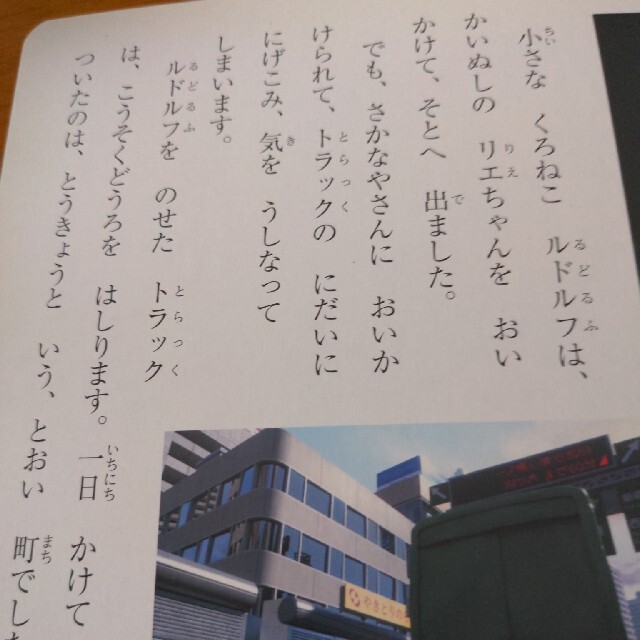 小さな　くろねこ　ルドルフは、
かいぬしの　リエちゃんを　おい
かけて、そとへ　出ました。
でも、さかなやさんに　おいか
けられて、トラックの　にだいに
にげこみ、気を　うしなって
しまいます。
ルドルフを　のせた　トラック
は、こうそくどうろを　はしります。一日　かけて
ついたのは、とうきょうと　いう、とおい　町でした